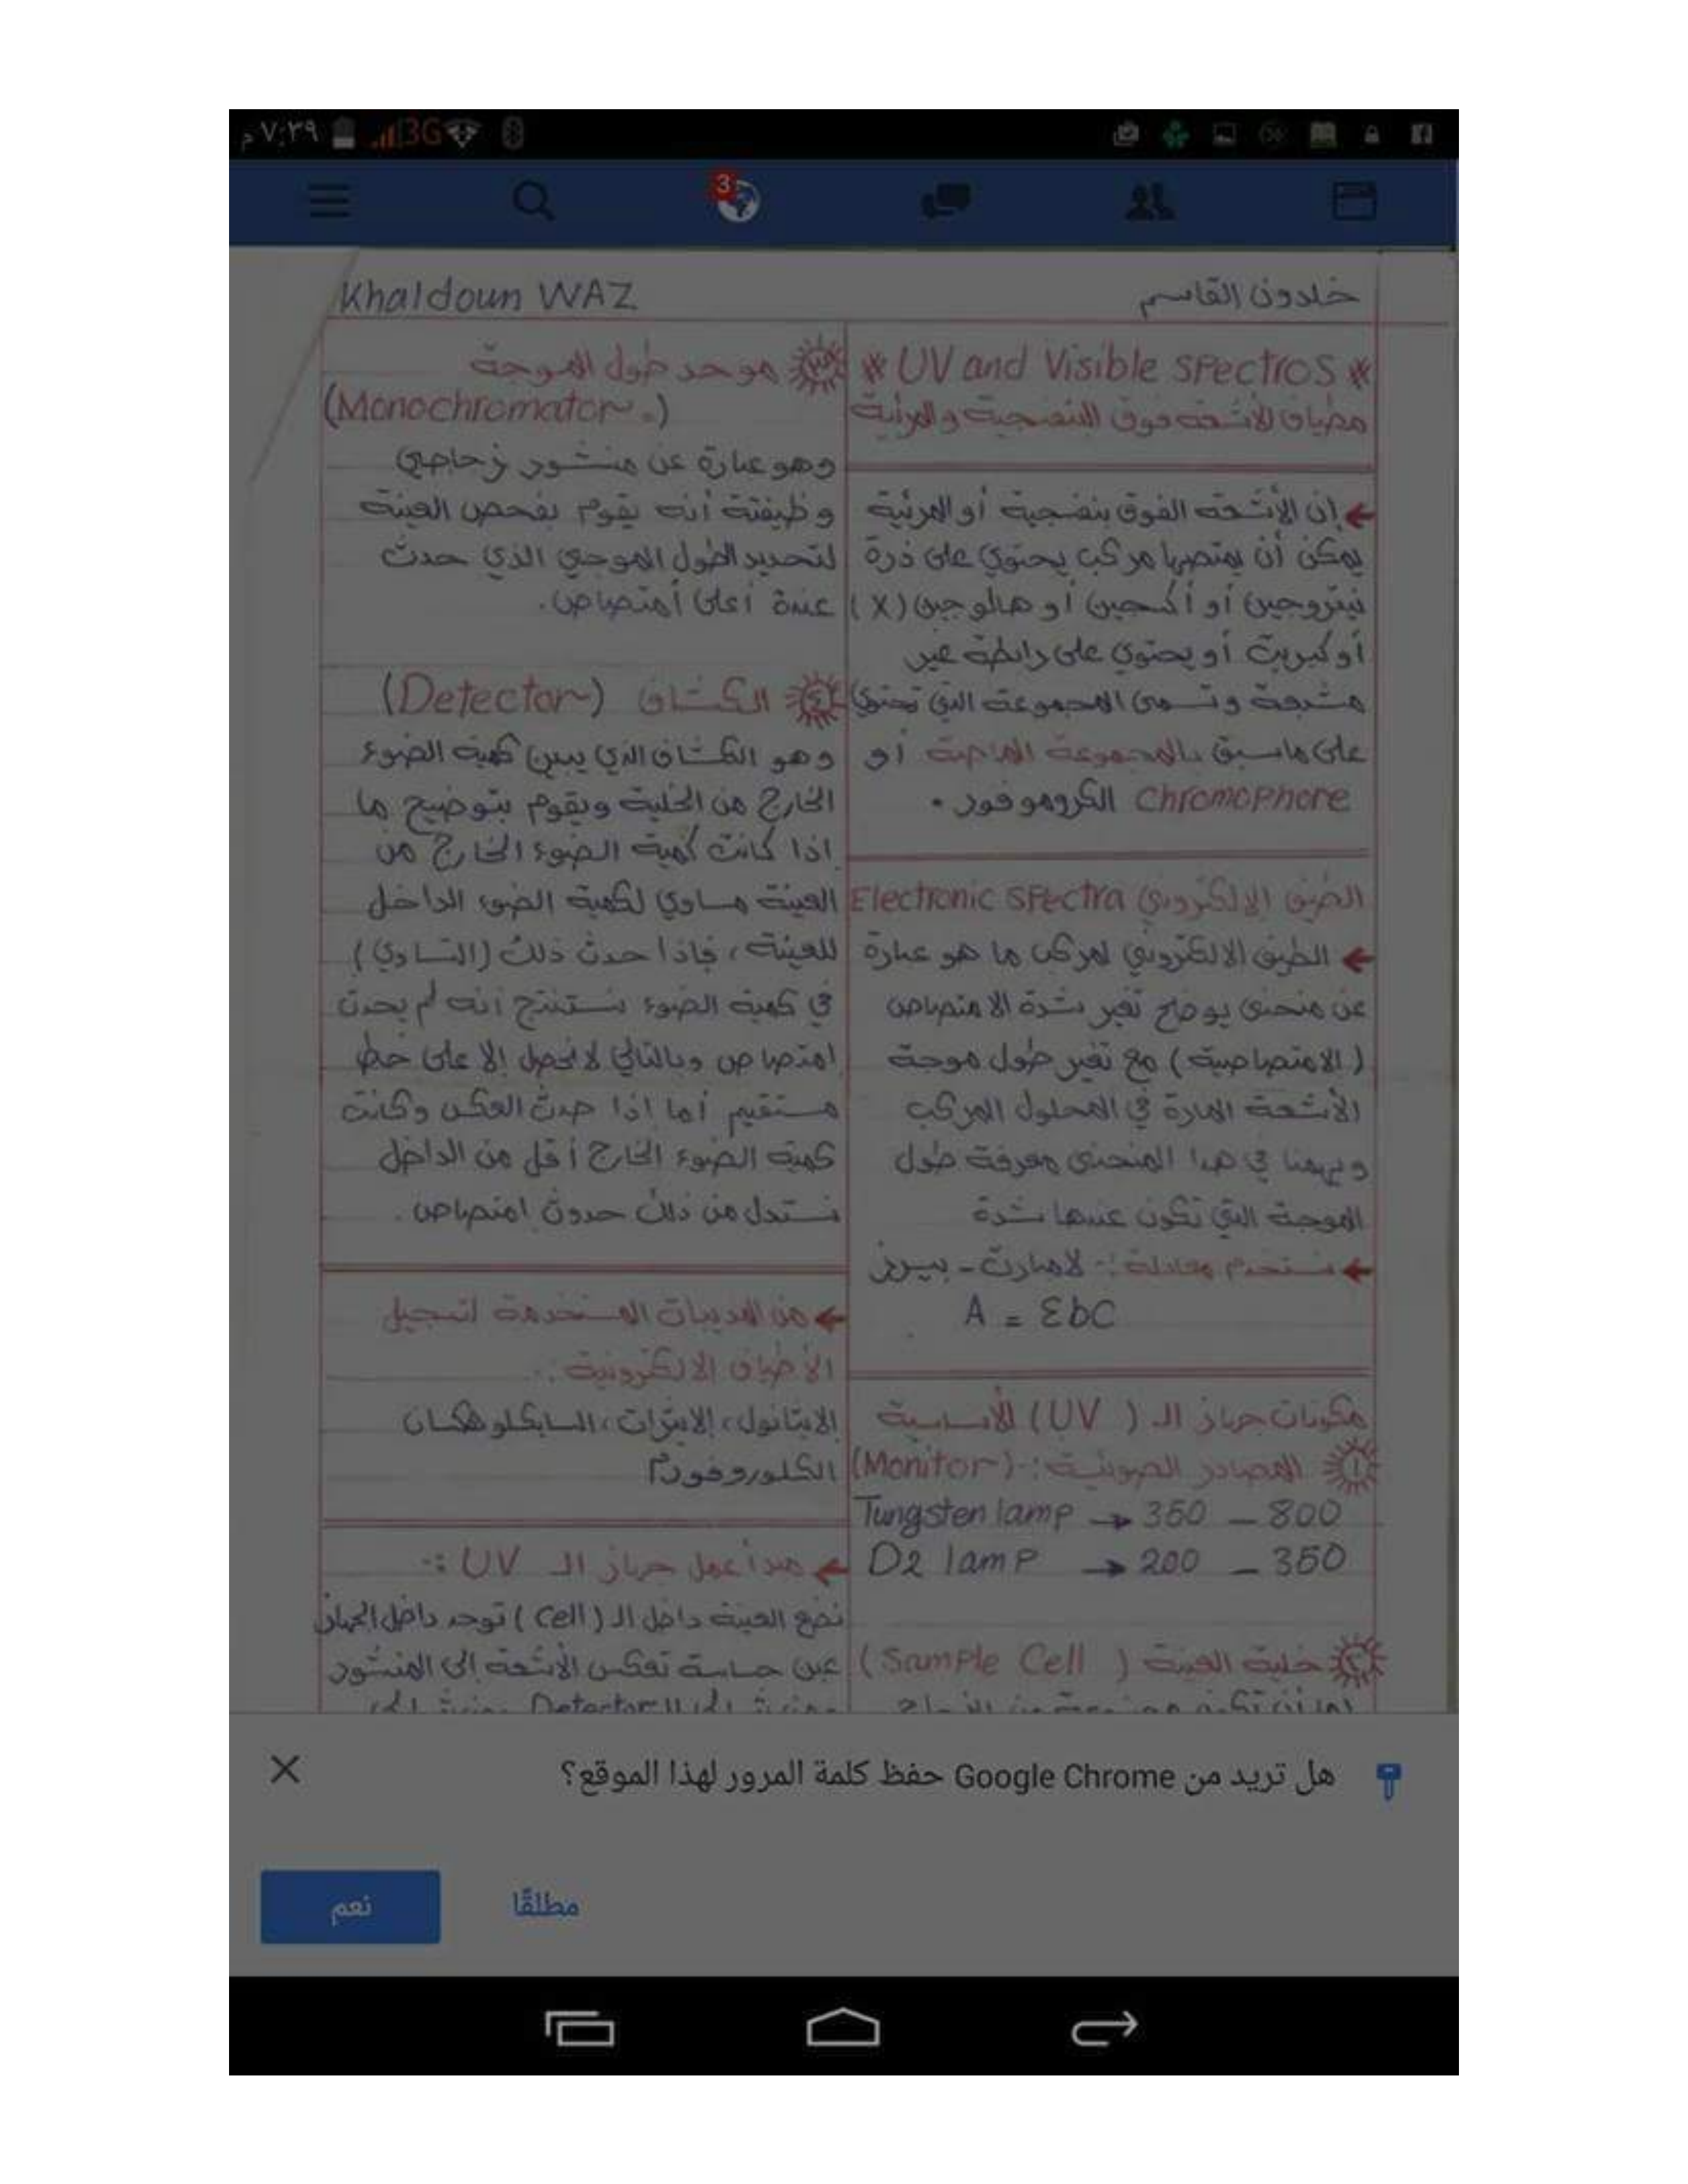 ٧:٣٩ م
3G
3
خلدون القاسم
Khaldoun WAZ
* UV and Visible SPectroS *
مطياف الأشعة فوق البنفسجية والمرئية
إن الأشعة الفوق بنفسجية أو المرئية
يمكن أن يمتصها مركب يحتوي على ذرة
نيتروجين أو أكسجين أو هالوجين (X)
أو كبريت أو يحتوي على رابطة غير
مشبعة وتسمى المجموعة التي تحتوي
على ماسبق بالمجموعة الماصة أو
chromophore الكروموفور .
الطيف الإلكتروني Electronic SPectra
الطيف الالكتروني لمركب ما هو عبارة
عن منحنى يوضح تغير شدة الامتصاص
(الامتصاصية) مع تغير طول موجة
الأشعة المارة في المحلول المركب
ويهمنا في هذا المنحنى معرفة طول
الموجة التي تكون عندها شدة
نستخدم معادلة :- لامبارت - بيرز
A = ƐbC
مكونات جهاز الـ (UV) الأساسية
١ المصادر الضوئية :- (Monitor)
Tungsten lamp → 350 – 800
D2 lamp → 200 – 350
٢ خلية العينة (Sample Cell)
اما أن تكون مصنوعة من الزجاج
٣ موحد طول الموجة
(Monochromator.)
وهو عبارة عن منشور زجاجي
وظيفتة أنه يقوم بفحص العينة
لتحديد الطول الموجي الذي حدث
عندة أعلى أمتصاص.
٤ الكشاف (Detector)
وهو الكشاف الذي يبين كمية الضوء
الخارج من الخلية ويقوم بتوضيح ما
اذا كانت كمية الضوء الخارج من
العينة مساوي لكمية الضوء الداخل
للعينة ، فإذا حدث ذلك (التساوي)
في كمية الضوء نستنتج أنه لم يحدث
امتصاص وبالتالي لانحصل الا على خط
مستقيم أما إذا حدث العكس وكانت
كمية الضوء الخارج أقل من الداخل
نستدل من ذلك حدوث امتصاص .
من المذيبات المستخدمة لتسجيل
الأطياف الالكترونية :-
الايثانول، الايثرات، السايكلوهكسان
الكلوروفورم
مبدأ عمل جهاز الـ UV :-
نضع العينة داخل الـ (cell) توجد داخل الجهاز
عين حساسة تعكس الأشعة إلى المنشور
الى الـ Detector
هل تريد من Google Chrome حفظ كلمة المرور لهذا الموقع؟
مطلقًا
نعم